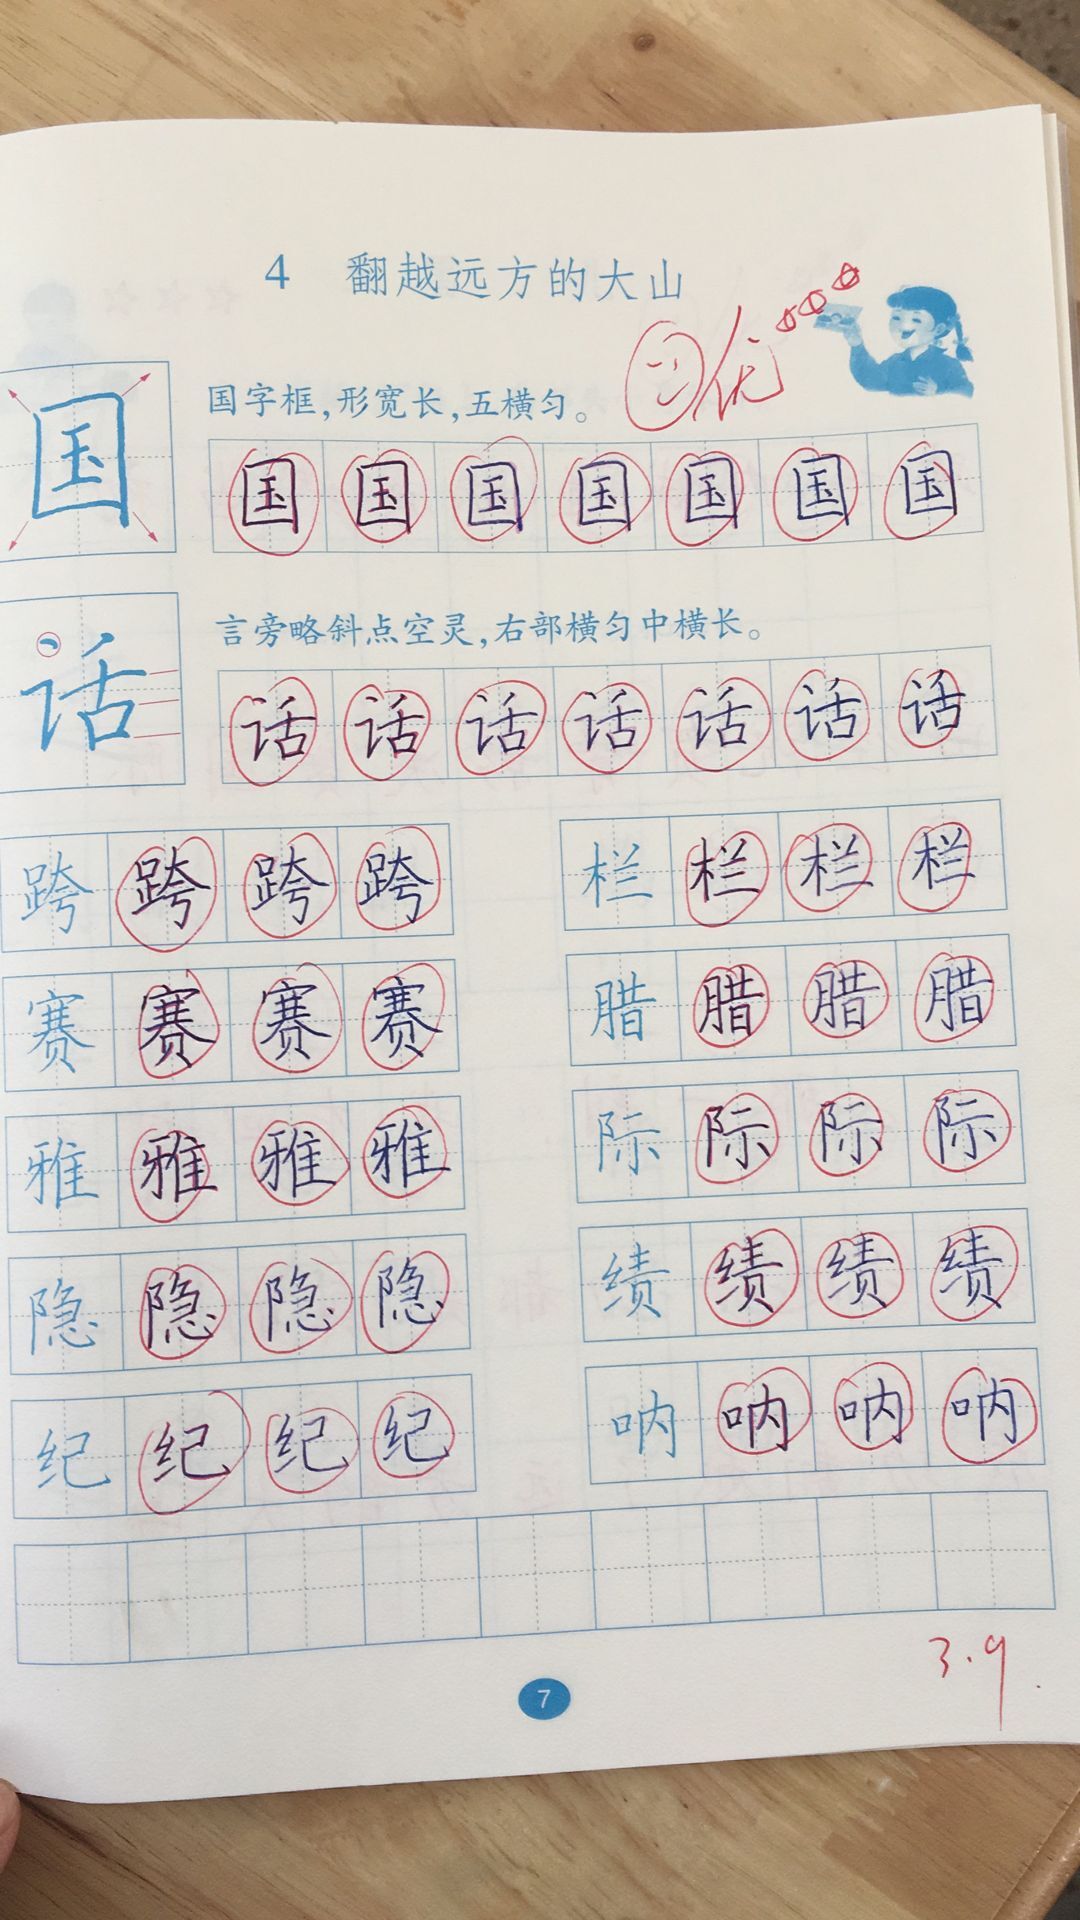 4 翻越远方的大山
优
国 国字框，形宽长，五横匀。
国 国 国 国 国 国 国
话 言旁略斜点空灵，右部横匀中横长。
话 话 话 话 话 话 话
跨 跨 跨 跨 栏 栏 栏 栏
赛 赛 赛 赛 腊 腊 腊 腊
雅 雅 雅 雅 际 际 际 际
隐 隐 隐 隐 绩 绩 绩 绩
纪 纪 纪 纪 呐 呐 呐 呐
3.9
7